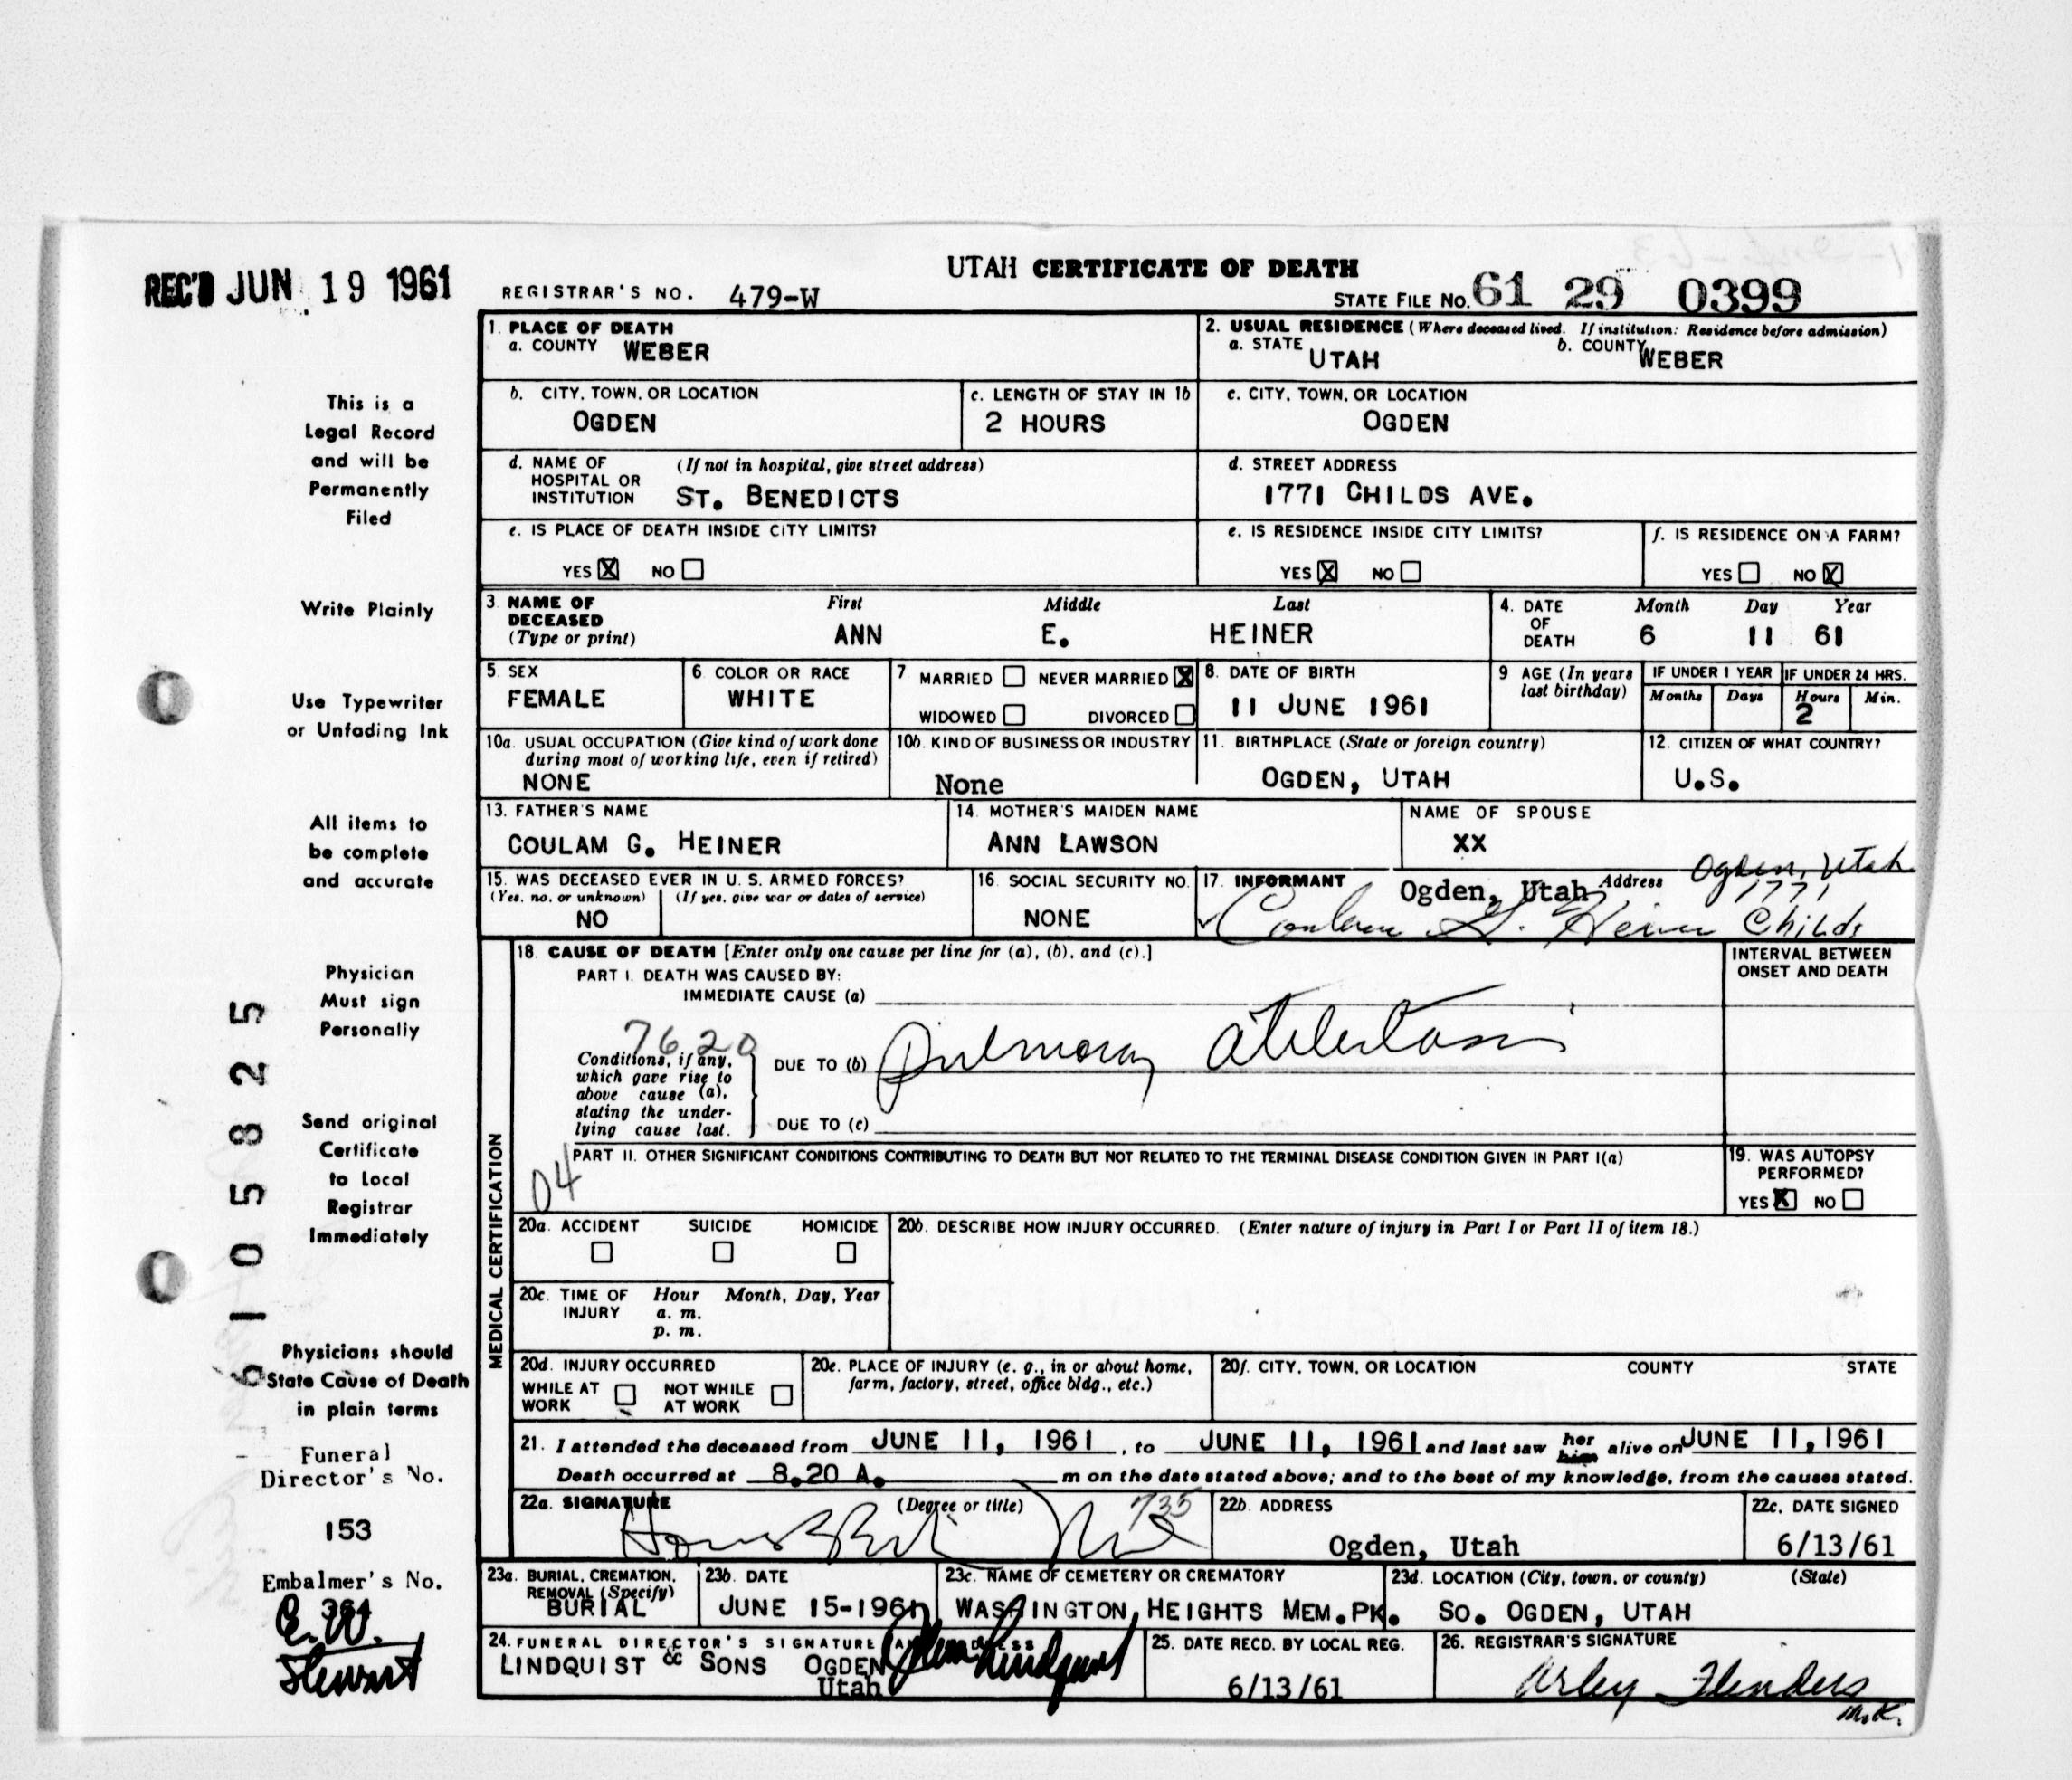 REC'D JUN 19 1961
UTAH CERTIFICATE OF DEATH
REGISTRAR'S NO. 479-W
STATE FILE NO. 61 29 0399
1. PLACE OF DEATH
a. COUNTY WEBER
2. USUAL RESIDENCE (Where deceased lived. If institution: Residence before admission)
a. STATE UTAH b. COUNTY WEBER
b. CITY, TOWN, OR LOCATION
OGDEN
c. LENGTH OF STAY IN 1b
2 HOURS
c. CITY, TOWN, OR LOCATION
OGDEN
d. NAME OF HOSPITAL OR INSTITUTION (If not in hospital, give street address)
ST. BENEDICTS
d. STREET ADDRESS
1771 CHILDS AVE.
e. IS PLACE OF DEATH INSIDE CITY LIMITS?
YES X NO
e. IS RESIDENCE INSIDE CITY LIMITS?
YES X NO
f. IS RESIDENCE ON A FARM?
YES NO X
3. NAME OF DECEASED (Type or print)
First Middle Last
ANN E. HEINER
4. DATE OF DEATH
Month Day Year
6 11 61
5. SEX
FEMALE
6. COLOR OR RACE
WHITE
7 MARRIED NEVER MARRIED X
WIDOWED DIVORCED
8. DATE OF BIRTH
11 JUNE 1961
9 AGE (In years last birthday)
IF UNDER 1 YEAR IF UNDER 24 HRS.
Months Days Hours Min.
2
10a. USUAL OCCUPATION (Give kind of work done during most of working life, even if retired)
NONE
10b. KIND OF BUSINESS OR INDUSTRY
None
11. BIRTHPLACE (State or foreign country)
OGDEN, UTAH
12. CITIZEN OF WHAT COUNTRY?
U.S.
13. FATHER'S NAME
COULAM G. HEINER
14. MOTHER'S MAIDEN NAME
ANN LAWSON
NAME OF SPOUSE
XX
15. WAS DECEASED EVER IN U. S. ARMED FORCES?
(Yes, no, or unknown) (If yes, give war or dates of service)
NO
16. SOCIAL SECURITY NO.
NONE
17. INFORMANT Ogden, Utah Address Ogden, Utah
1771
Coulam G. Heiner Childs
MEDICAL CERTIFICATION
18. CAUSE OF DEATH [Enter only one cause per line for (a), (b), and (c).]
INTERVAL BETWEEN ONSET AND DEATH
PART I. DEATH WAS CAUSED BY:
IMMEDIATE CAUSE (a)
7620
Conditions, if any, which gave rise to above cause (a), stating the underlying cause last.
DUE TO (b) pulmonary atelectasis
DUE TO (c)
04
PART II. OTHER SIGNIFICANT CONDITIONS CONTRIBUTING TO DEATH BUT NOT RELATED TO THE TERMINAL DISEASE CONDITION GIVEN IN PART I(a)
19. WAS AUTOPSY PERFORMED?
YES X NO
20a. ACCIDENT SUICIDE HOMICIDE
20b. DESCRIBE HOW INJURY OCCURRED. (Enter nature of injury in Part I or Part II of item 18.)
20c. TIME OF INJURY Hour Month, Day, Year
a. m.
p. m.
20d. INJURY OCCURRED
WHILE AT WORK NOT WHILE AT WORK
20e. PLACE OF INJURY (e. g., in or about home, farm, factory, street, office bldg., etc.)
20f. CITY, TOWN, OR LOCATION COUNTY STATE
21. I attended the deceased from JUNE 11, 1961, to JUNE 11, 1961 and last saw her him alive on JUNE 11, 1961
Death occurred at 8.20 A. m on the date stated above; and to the best of my knowledge, from the causes stated.
22a. SIGNATURE (Degree or title)
735
22b. ADDRESS
Ogden, Utah
22c. DATE SIGNED
6/13/61
23a. BURIAL, CREMATION, REMOVAL (Specify)
BURIAL
23b. DATE
JUNE 15-1961
23c. NAME OF CEMETERY OR CREMATORY
WASHINGTON HEIGHTS MEM.PK.
23d. LOCATION (City, town, or county) (State)
SO. OGDEN, UTAH
24. FUNERAL DIRECTOR'S SIGNATURE
LINDQUIST & SONS OGDEN
Utah
Lindquist
25. DATE RECD. BY LOCAL REG.
6/13/61
26. REGISTRAR'S SIGNATURE
Arley Flenders
M.K.
This is a
Legal Record
and will be
Permanently
Filed
Write Plainly
Use Typewriter
or Unfading Ink
All items to
be complete
and accurate
Physician
Must sign
Personally
Send original
Certificate
to Local
Registrar
Immediately
Physicians should
State Cause of Death
in plain terms
Funeral
Director's No.
153
Embalmer's No.
364
E. W.
Stewart
6105825